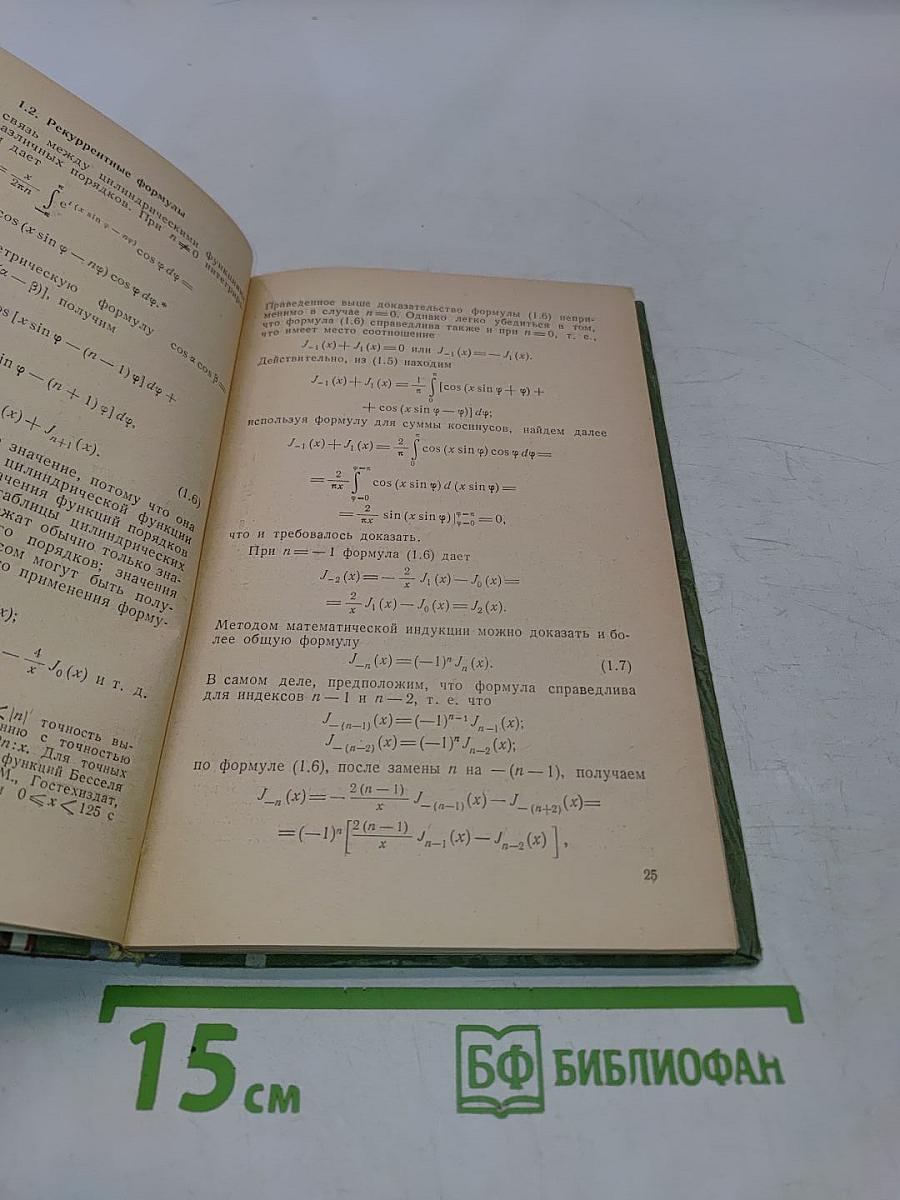 1.2. Рекуррентные формулы
связь между цилиндрическими функциями
различных порядков. При n ≠ 0
дает
= x/2πn ∫_{-π}^{π} e^{i(x sin φ — nφ)} cos φ dφ =
cos (x sin φ — nφ) cos φ dφ.*
формулу cos α cos β =
α — β)], получим
os [x sin φ — (n — 1) φ] dφ +
in φ — (n + 1) φ] dφ,
(x) + J_{n+1}(x).
(1.6)
значение, потому что она
цилиндрической функции
функций порядков
таблицы цилиндрических
жат обычно только зна-
порядков; значения
сом могут быть полу-
применения форму-
x);
— 4/x J_0(x) и т. д.
< |n| точность вы-
нию с точностью
2n:x. Для точных
функций Бесселя
М., Гостехиздат,
0 ⩽ x ⩽ 125 с
Праведенное выше доказательство формулы (1.6) непри-
менимо в случае n = 0. Однако легко убедиться в том,
что формула (1.6) справедлива также и при n = 0, т. е.,
что имеет место соотношение
J_{—1}(x) + J_1(x) = 0 или J_{—1}(x) = — J_1(x).
Действительно, из (1.5) находим
J_{—1}(x) + J_1(x) = 1/π ∫_0^π [cos (x sin φ + φ) +
+ cos (x sin φ — φ)] dφ;
используя формулу для суммы косинусов, найдем далее
J_{—1}(x) + J_1(x) = 2/π ∫_0^π cos (x sin φ) cos φ dφ =
= 2/πx ∫_{φ=0}^{φ=π} cos (x sin φ) d (x sin φ) =
= 2/πx sin (x sin φ) |_{φ=0}^{φ=π} = 0,
что и требовалось доказать.
При n = — 1 формула (1.6) дает
J_{—2}(x) = — 2/x J_1(x) — J_0(x) =
= 2/x J_1(x) — J_0(x) = J_2(x).
Методом математической индукции можно доказать и бо-
лее общую формулу
J_{—n}(x) = (—1)^n J_n(x). (1.7)
В самом деле, предположим, что формула справедлива
для индексов n — 1 и n — 2, т. е. что
J_{—(n—1)}(x) = (—1)^{n—1} J_{n—1}(x);
J_{—(n—2)}(x) = (—1)^n J_{n—2}(x);
по формуле (1.6), после замены n на — (n — 1), получаем
J_{—n}(x) = — 2(n — 1)/x J_{—(n—1)}(x) — J_{—(n+2)}(x) =
= (—1)^n [2(n — 1)/x J_{n—1}(x) — J_{n—2}(x)],
25
15 см
БФ БИБЛИОФАН